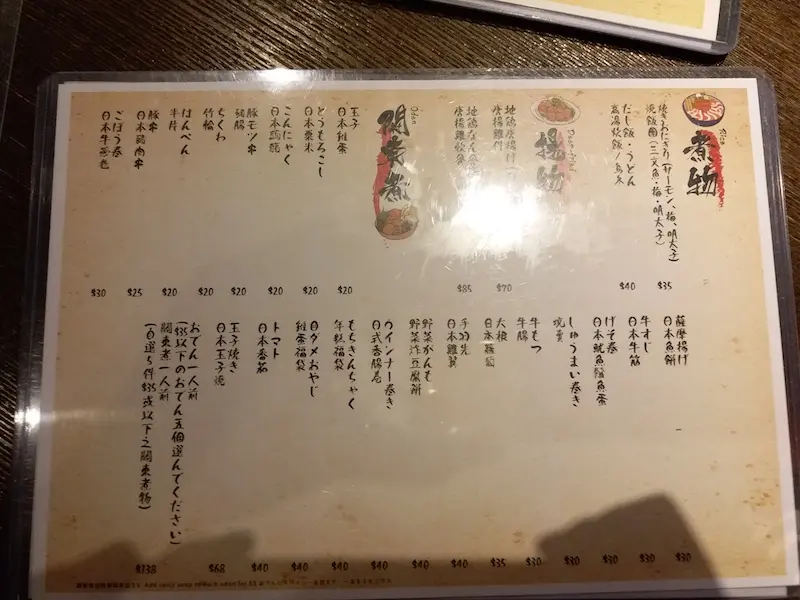 煮物
焼きおにぎり(サーモン、梅、明太子)
燒飯團(三文魚・梅・明太子)
$35
だし飯・うどん
高湯炊飯/烏冬
$40
揚物
地鶏唐揚げ
唐揚雞件
$70
地鶏なん
唐揚雞軟骨
$85
関東煮
玉子
日本雞蛋
$20
とうもろこし
日本粟米
$20
こんにゃく
日本蒟蒻
$20
豚モツ串
豬腸
$20
ちくわ
竹輪
$20
はんぺん
半片
$20
豚串
日本豬肉串
$25
ごぼう巻
日本牛蒡卷
$30
薩摩揚げ
日本魚餅
$30
牛すじ
日本牛筋
$30
げそ巻
日本魷魚鬚魚蛋
$30
しゅうまい巻き
燒賣
$30
牛もつ
牛腸
$30
大根
日本蘿蔔
$35
手羽先
日本雞翼
$40
野菜がんも
野菜炸豆腐餅
$40
ウインナー巻き
日式香腸卷
$40
もちきんちゃく
年糕福袋
$40
ダメおやじ
雞蛋福袋
$40
トマト
日本番茄
$40
玉子焼き
日本玉子燒
$68
おでん一人前
($35以下のおでん五個選んでください)
關東煮一人前
(自選5件$35或以下之關東煮物)
$138